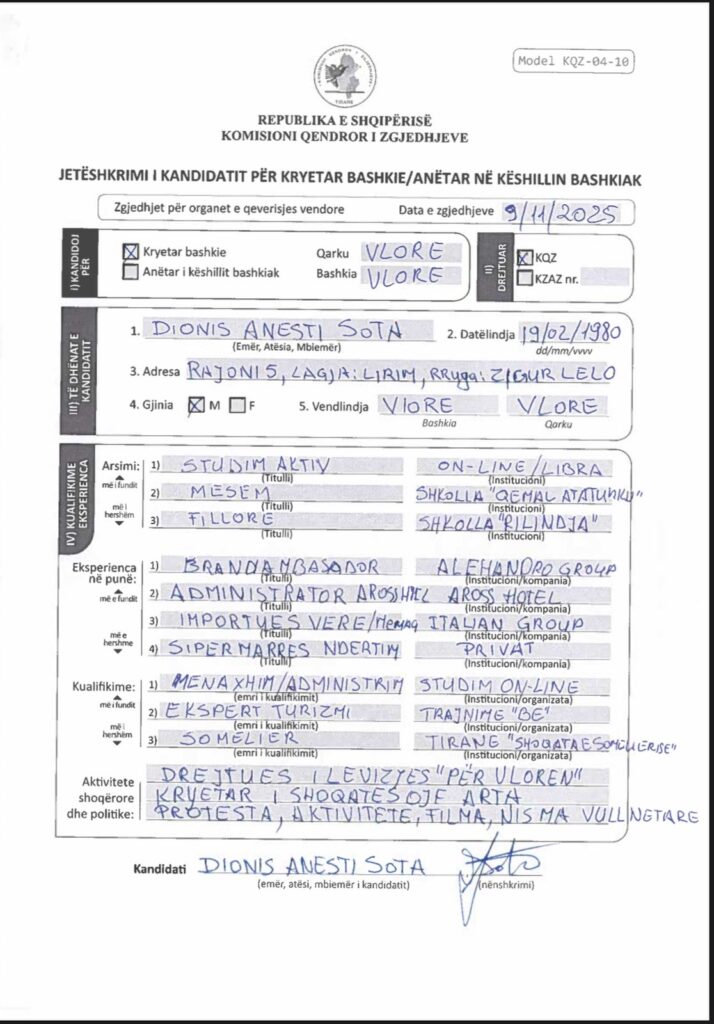 Model KQZ-04-10
KOMISIONI QENDROR I ZGJEDHJEVE
TIRANË
REPUBLIKA E SHQIPËRISË
KOMISIONI QENDROR I ZGJEDHJEVE
JETËSHKRIMI I KANDIDATIT PËR KRYETAR BASHKIE/ANËTAR NË KËSHILLIN BASHKIAK
Zgjedhjet për organet e qeverisjes vendore Data e zgjedhjeve 9/11/2025
I) KANDIDOJ PËR
Kryetar bashkie Qarku VLORE
Anëtar i këshillit bashkiak Bashkia VLORE
II) DREJTUAR
KQZ
KZAZ nr.
III) TË DHËNAT E KANDIDATIT
1. DIONIS ANESTI SOTA 2. Datëlindja 19/02/1980
(Emër, Atësia, Mbiemër) dd/mm/vvvv
3. Adresa RAJONI 5, LAGJA: LIRIM, RRuga: ZIGUR LELO
4. Gjinia M F 5. Vendlindja VlORE VLORE
Bashkia Qarku
IV) KUALIFIKIME EKSPERIENCA
Arsimi: 1) STUDIM AKTIV ON-LINE/LIBRA
më i fundit (Titulli) (Institucioni)
2) MESEM SHKOLLA "QEMAL ATATURKU"
më i hershëm (Titulli) (Institucioni)
3) FILLORE SHKOLLA "RILINDJA"
(Titulli) (Institucioni)
Eksperienca në punë: 1) BRANDAMBASADOR ALEHANDRO GROUP
(Titulli) (Institucioni/kompania)
më e fundit 2) ADMINISTRATOR AROSS HOTEL AROSS HOTEL
(Titulli) (Institucioni/kompania)
3) IMPORTUES VERE/ ITALIAN GROUP
më e hershme (Titulli) (Institucioni/kompania)
4) SIPERMARRES NDERTIM PRIVAT
(Titulli) (Institucioni/kompania)
Kualifikime: 1) MENAXHIM/ADMINISTRIM STUDIM ON-LINE
më i fundit (emri i kualifikimit) (Institucioni/organizata)
2) EKSPERT TURIZMI TRAJNIME "BE"
më i hershëm (emri i kualifikimit) (Institucioni/organizata)
3) SOMELIER TIRANE
(emri i kualifikimit) (Institucioni/organizata)
Aktivitete shoqërore dhe politike: DREJTUES I LEVIZJES "PËR VLOREN"
KRYETAR I SHOQATES OJF ARTA
PROTESTA, AKTIVITETE, FILMA, NISMA VULLNETARE
Kandidati DIONIS ANESTI SOTA
(emër, atësi, mbiemër i kandidatit) (nënshkrimi)